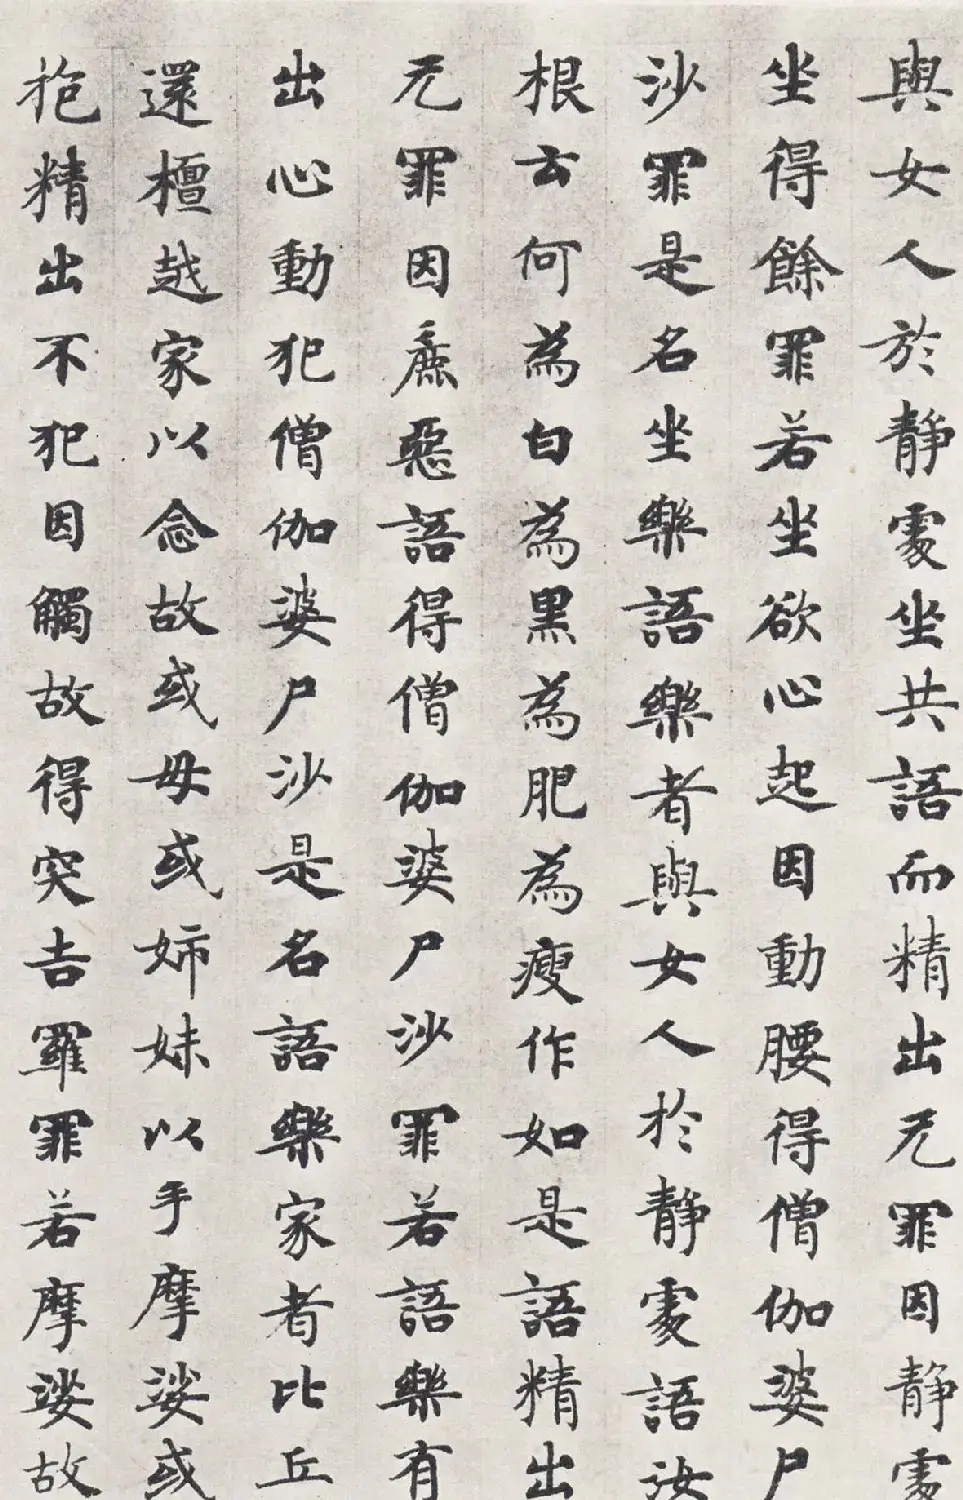 與女人於静處坐共語而精出无罪因静處
坐得餘罪若坐欲心起因動腰得僧伽婆尸
沙罪是名坐樂語樂者與女人於静處語汝
根云何為白為黑為肥為瘦作如是語精出
无罪因麁惡語得僧伽婆尸沙罪若語樂有
出心動犯僧伽婆尸沙是名語樂家者比丘
還檀越家以念故或母或姉妹以手摩娑或
抱精出不犯因觸故得突吉羅罪若摩娑故